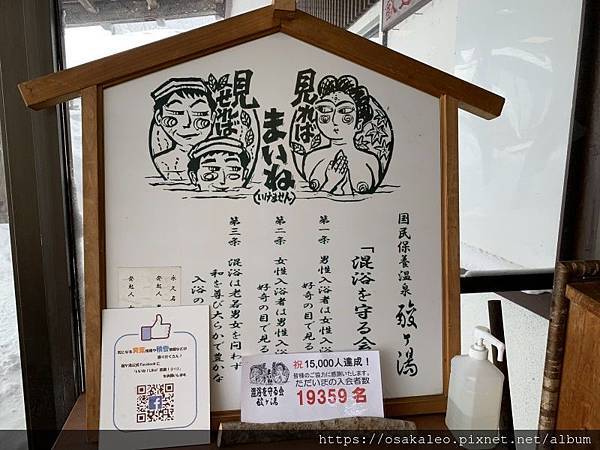 見れば
見せれば
まいね
(いけません)
国民保養温泉 酸ヶ湯
「混浴を守る会
第一条 男性入浴者は女性入浴
好奇の目で見る
第二条 女性入浴者は男性入浴
好奇の目で見る
第三条 混浴は老若男女を問わず
和を尊び大らかで豊かな
入浴の
永久名
発起人
発起人
祝 15,000人達成!
皆様のご協力に感謝いたします。
ただいまの入会者数
19359 名
混浴を守る会
酸ヶ湯
https://osakaleo.pixnet.net/album